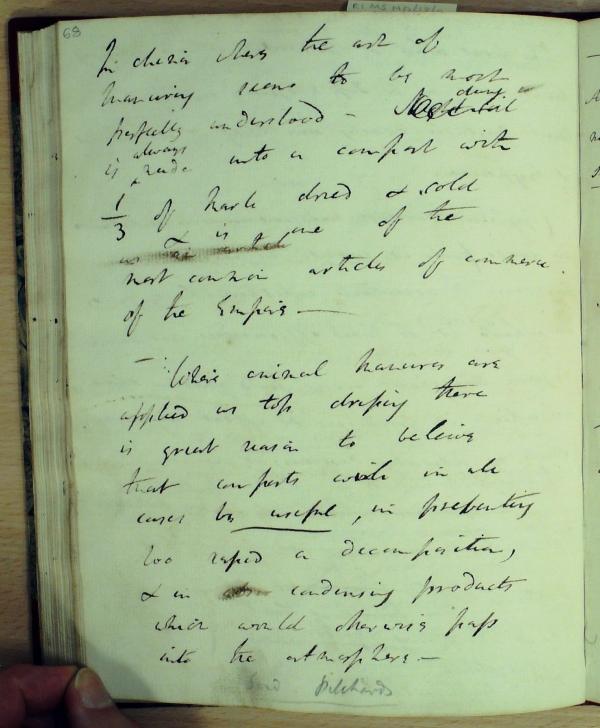 68
In china where the art of
manuring seems to be most
perfectly understood - dung
is always made into a compost with
1/3 of marle dried & sold
& is one of the
most common articles of commerce
of the Empire —
— Where animal manures are
applied as top dressing there
is great reason to believe
that composts will in all
cases be useful, in preventing
too rapid a decomposition,
& in condensing products
which would otherwise pass
into the atmosphere —
pilchards